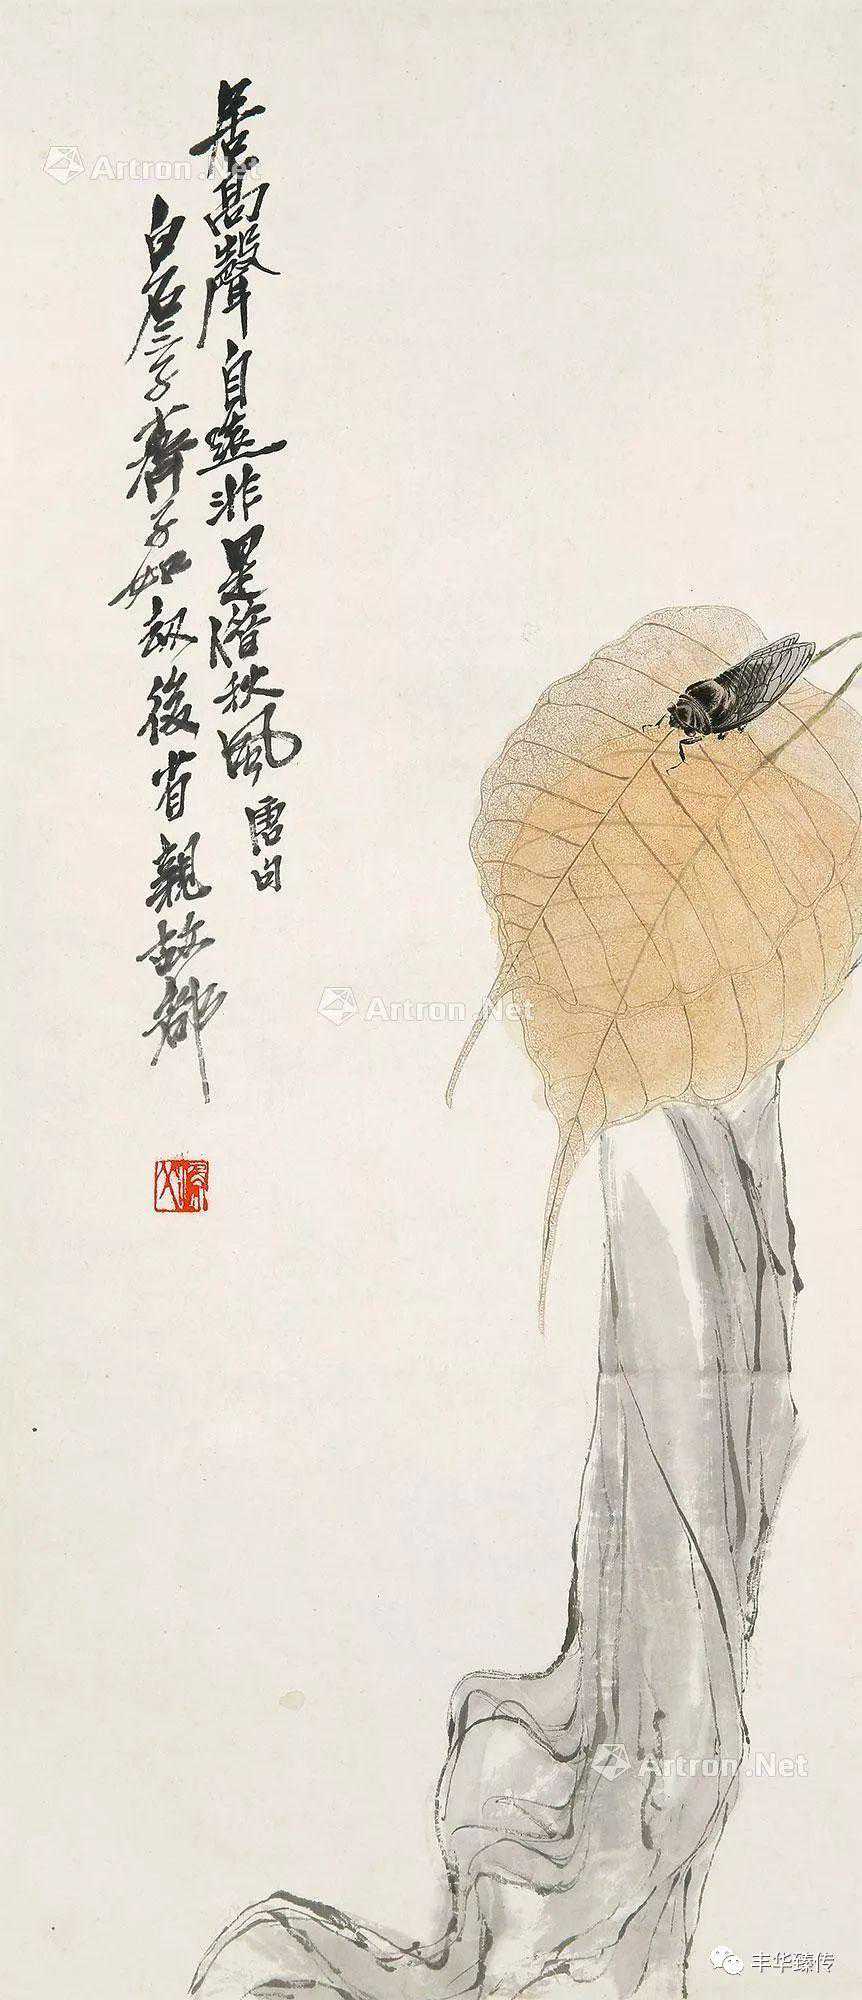 居高聲自遠非是借秋風 唐句
白石三子齊子如劫後省親故都
Artron.Net
Artron.Net
Artron.Net
丰华臻传